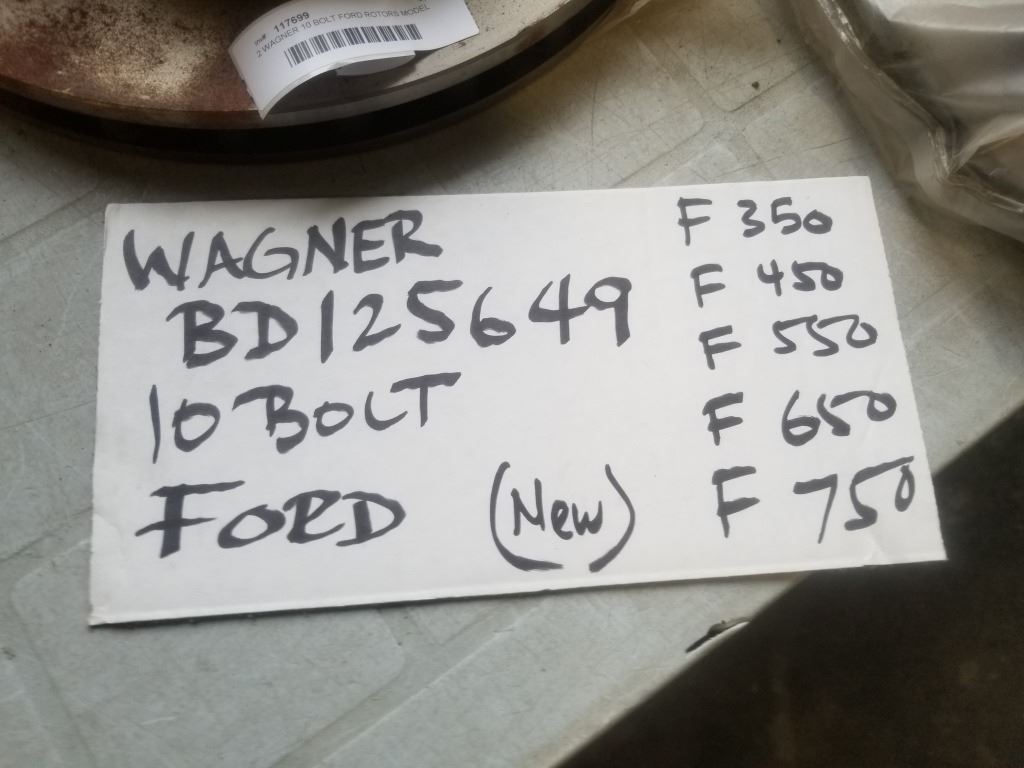 117699
2 WAGNER 10 BOLT FORD ROTORS MODEL
WAGNER
BD125649
10 BOLT
FORD (New)
F 350
F 450
F 550
F 650
F 750